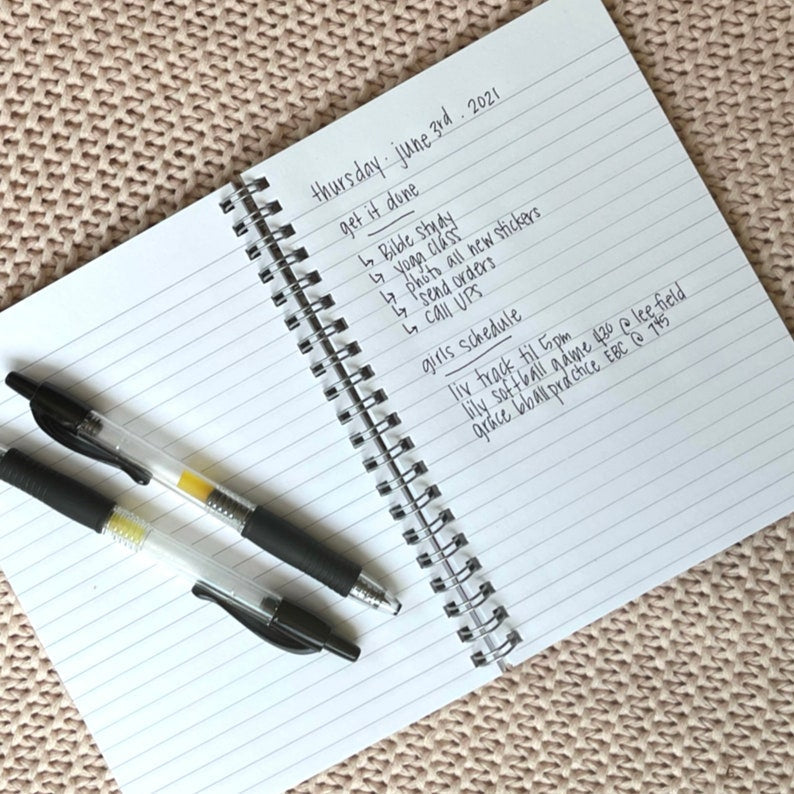 thursday. june 3rd. 2021
get it done
↳ Bible Study
↳ yoga class
↳ photo all new stickers
↳ send orders
↳ call UPS
girls schedule
liv track til 5pm
lily softball game 430 @ lee field
grace bball practice EBC @ 745